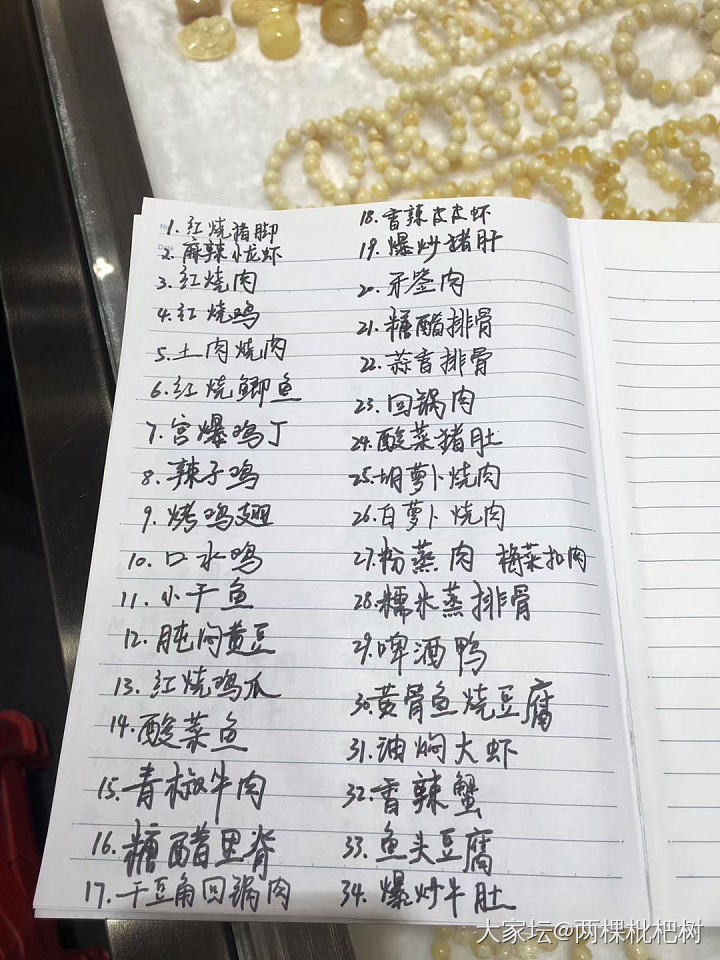 1. 红烧猪脚
2. 麻辣小龙虾
3. 红烧肉
4. 红烧鸡
5. 土肉烧肉
6. 红烧鲫鱼
7. 宫爆鸡丁
8. 辣子鸡
9. 烤鸡翅
10. 口水鸡
11. 小干鱼
12. 肫闷黄豆
13. 红烧鸡爪
14. 酸菜鱼
15. 青椒牛肉
16. 糖醋里脊
17. 干豆角回锅肉
18. 香辣皮皮虾
19. 爆炒猪肝
20. 牙签肉
21. 糖醋排骨
22. 蒜香排骨
23. 回锅肉
24. 酸菜猪肚
25. 胡萝卜烧肉
26. 白萝卜烧肉
27. 粉蒸肉 梅菜扣肉
28. 糯米蒸排骨
29. 啤酒鸭
30. 黄骨鱼烧豆腐
31. 油焖大虾
32. 香辣蟹
33. 鱼头豆腐
34. 爆炒牛肚
大家坛@两棵枇杷树